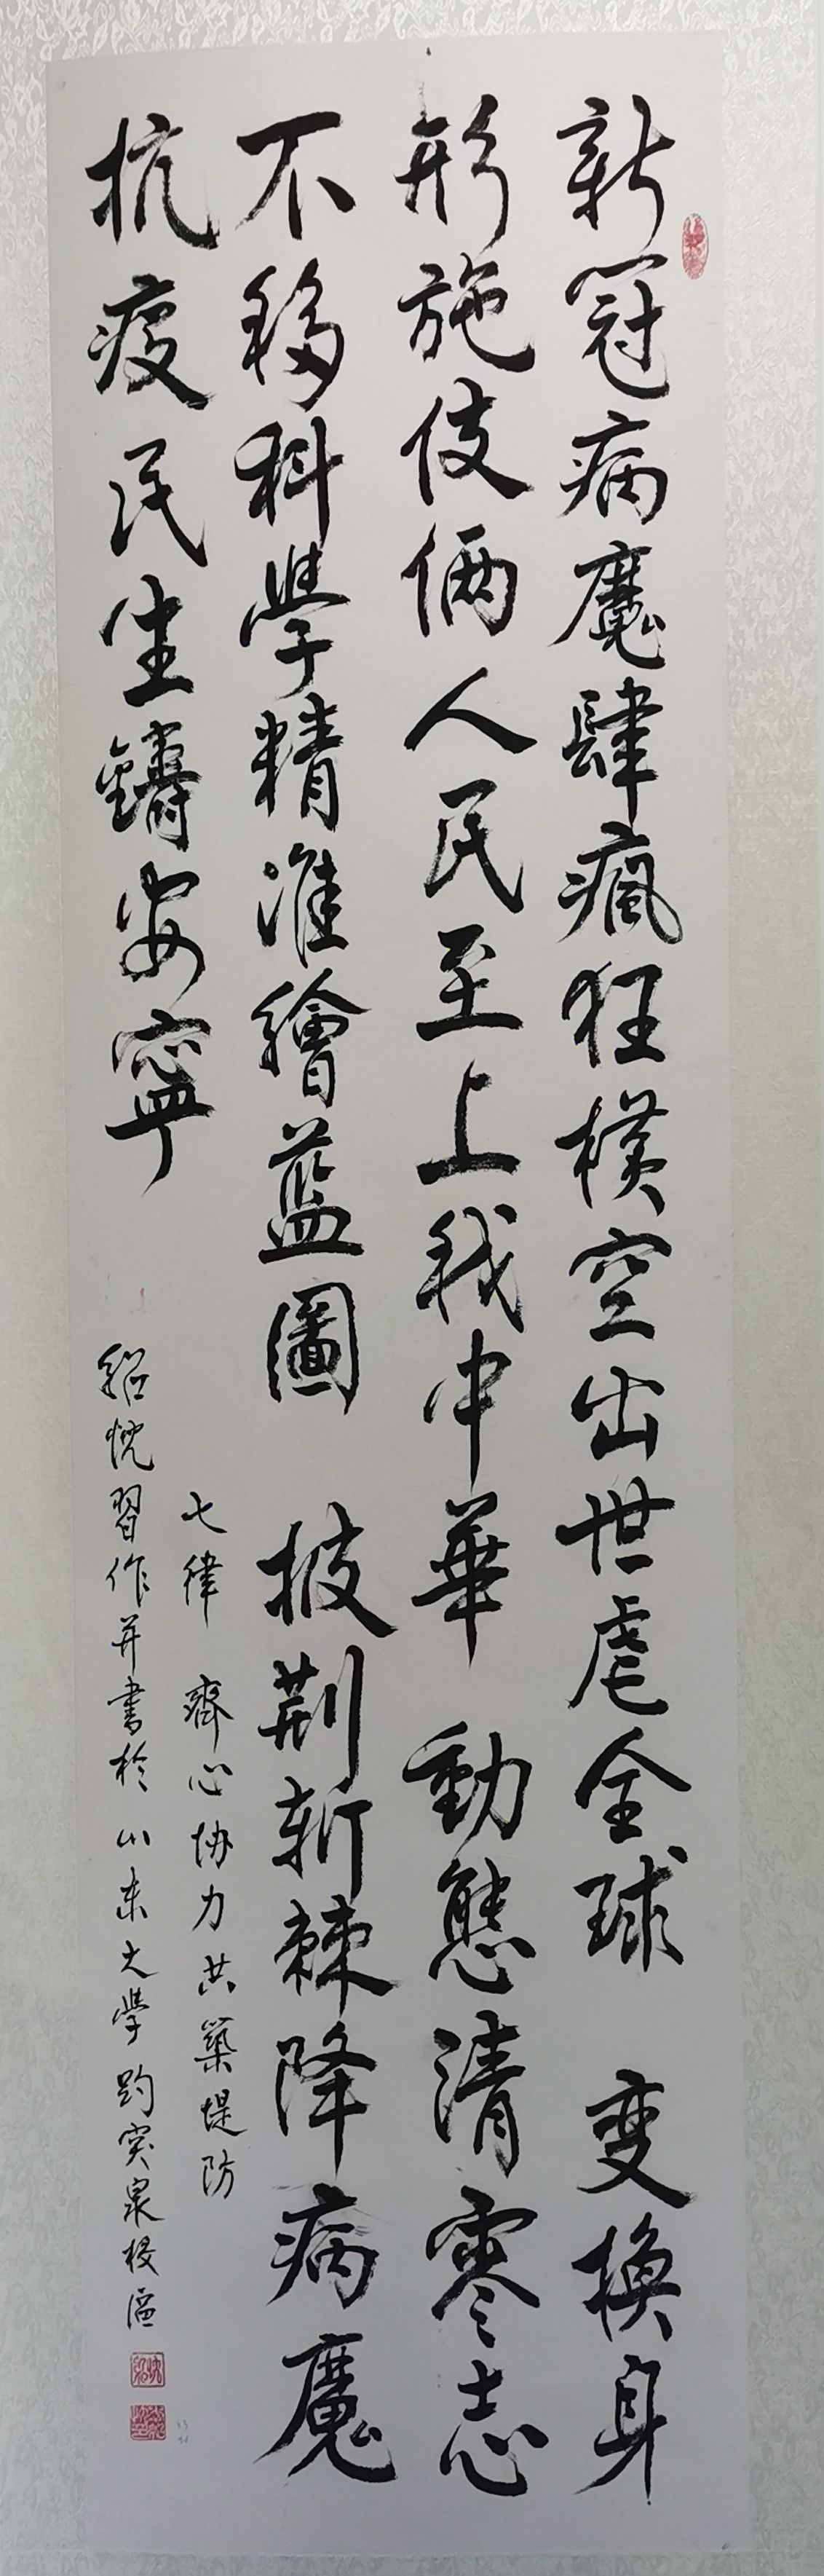 新冠病魔肆瘋狂橫空出世虐全球 变換身
形施伎倆人民至上我中華 動態清零志
不移科學精准繪藍圖 披荆斬棘降病魔
抗疫民生鑄安寧
七律 齊心协力共築堤防
忱習作并書於山東大學趵突泉校區